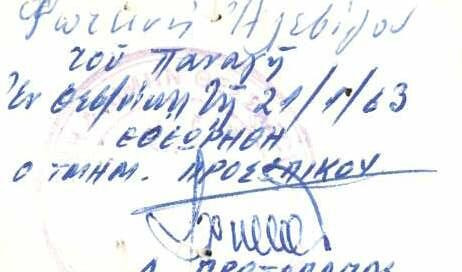 Φωτεινή Αλεβίζου
του Παναγή
Εν Θεσ/νίκη τη 21/1/63
ΕΘΕΩΡΗΘΗ
Ο ΤΜΗΜ. ΠΡΟΣΩΠΙΚΟΥ